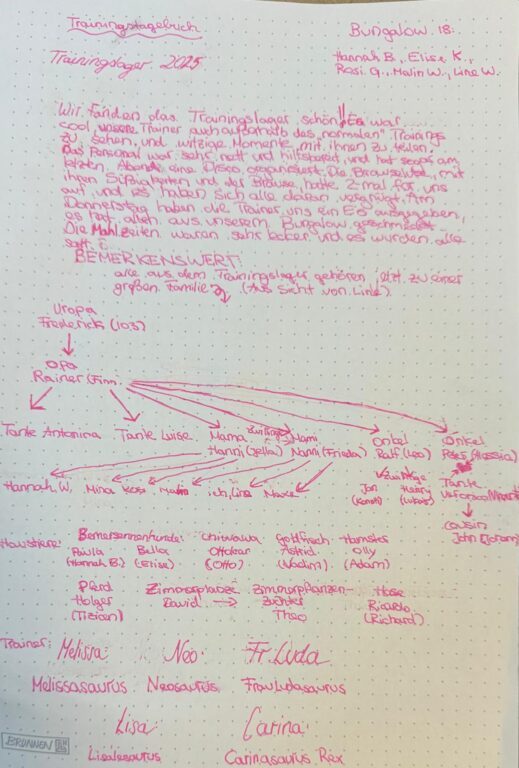 Trainingstagebuch
Bungalow 18:
Trainingslager 2025
Hannah B., Elise K.,
Rosi G., Malin W., Line W.
Wir fanden das Trainingslager schön!! Es war
cool, unsere Trainer auch außerhalb des "normalen" Trainings
zu sehen, und witzige Momente mit ihnen zu teilen.
Das Personal war sehr nett und hilfsbereit, und hat sogar am
letzten Abend eine Disco organisiert. Die mit
ihren Süßigkeiten und der Brause, hatte 2-mal für uns
auf und es haben sich alle daran vergnügt. Am
Donnerstag haben die Trainer uns ein Eis ausgegeben,
es hat allen aus unserem Bungalow geschmeckt.
Die Mahlzeiten waren sehr lecker und es wurden alle
satt.
BEMERKENSWERT:
alle aus dem Trainingslager gehören jetzt zu einer
großen Familie (Aus Sicht von Line)
Uropa
Frederick (103)
Opa
Rainer (Finn)
Tante Antonina Tante Luise Mama Zwillinge Mami Onkel Onkel
Hanni (Jella) Nanni (Frieda) Ralf (Leo) Peter
Hannah W. Mina Rosi Malin ich, Line Zwillinge Tante
Jon Henry Veronica
Cousin
John
Haustiere: Bernersennenhunde: Chiwawa Goldfisch Hamster
Paula Bella Ottokar Astrid Olly
(Hannah B.) (Elise) (Otto) (Vadim) (Adam)
Pferd Zimmerpflanze Zimmerpflanzen- Hase
Holger David → züchter Ricardo
(Tizian) Theo (Richard)
Trainer: Melissa: Neo: Fr. Luda
Melissasaurus Neosaurus Frau Ludasaurus
Lisa: Carina:
Lisalesaurus Carinasaurus Rex
BRUNNEN